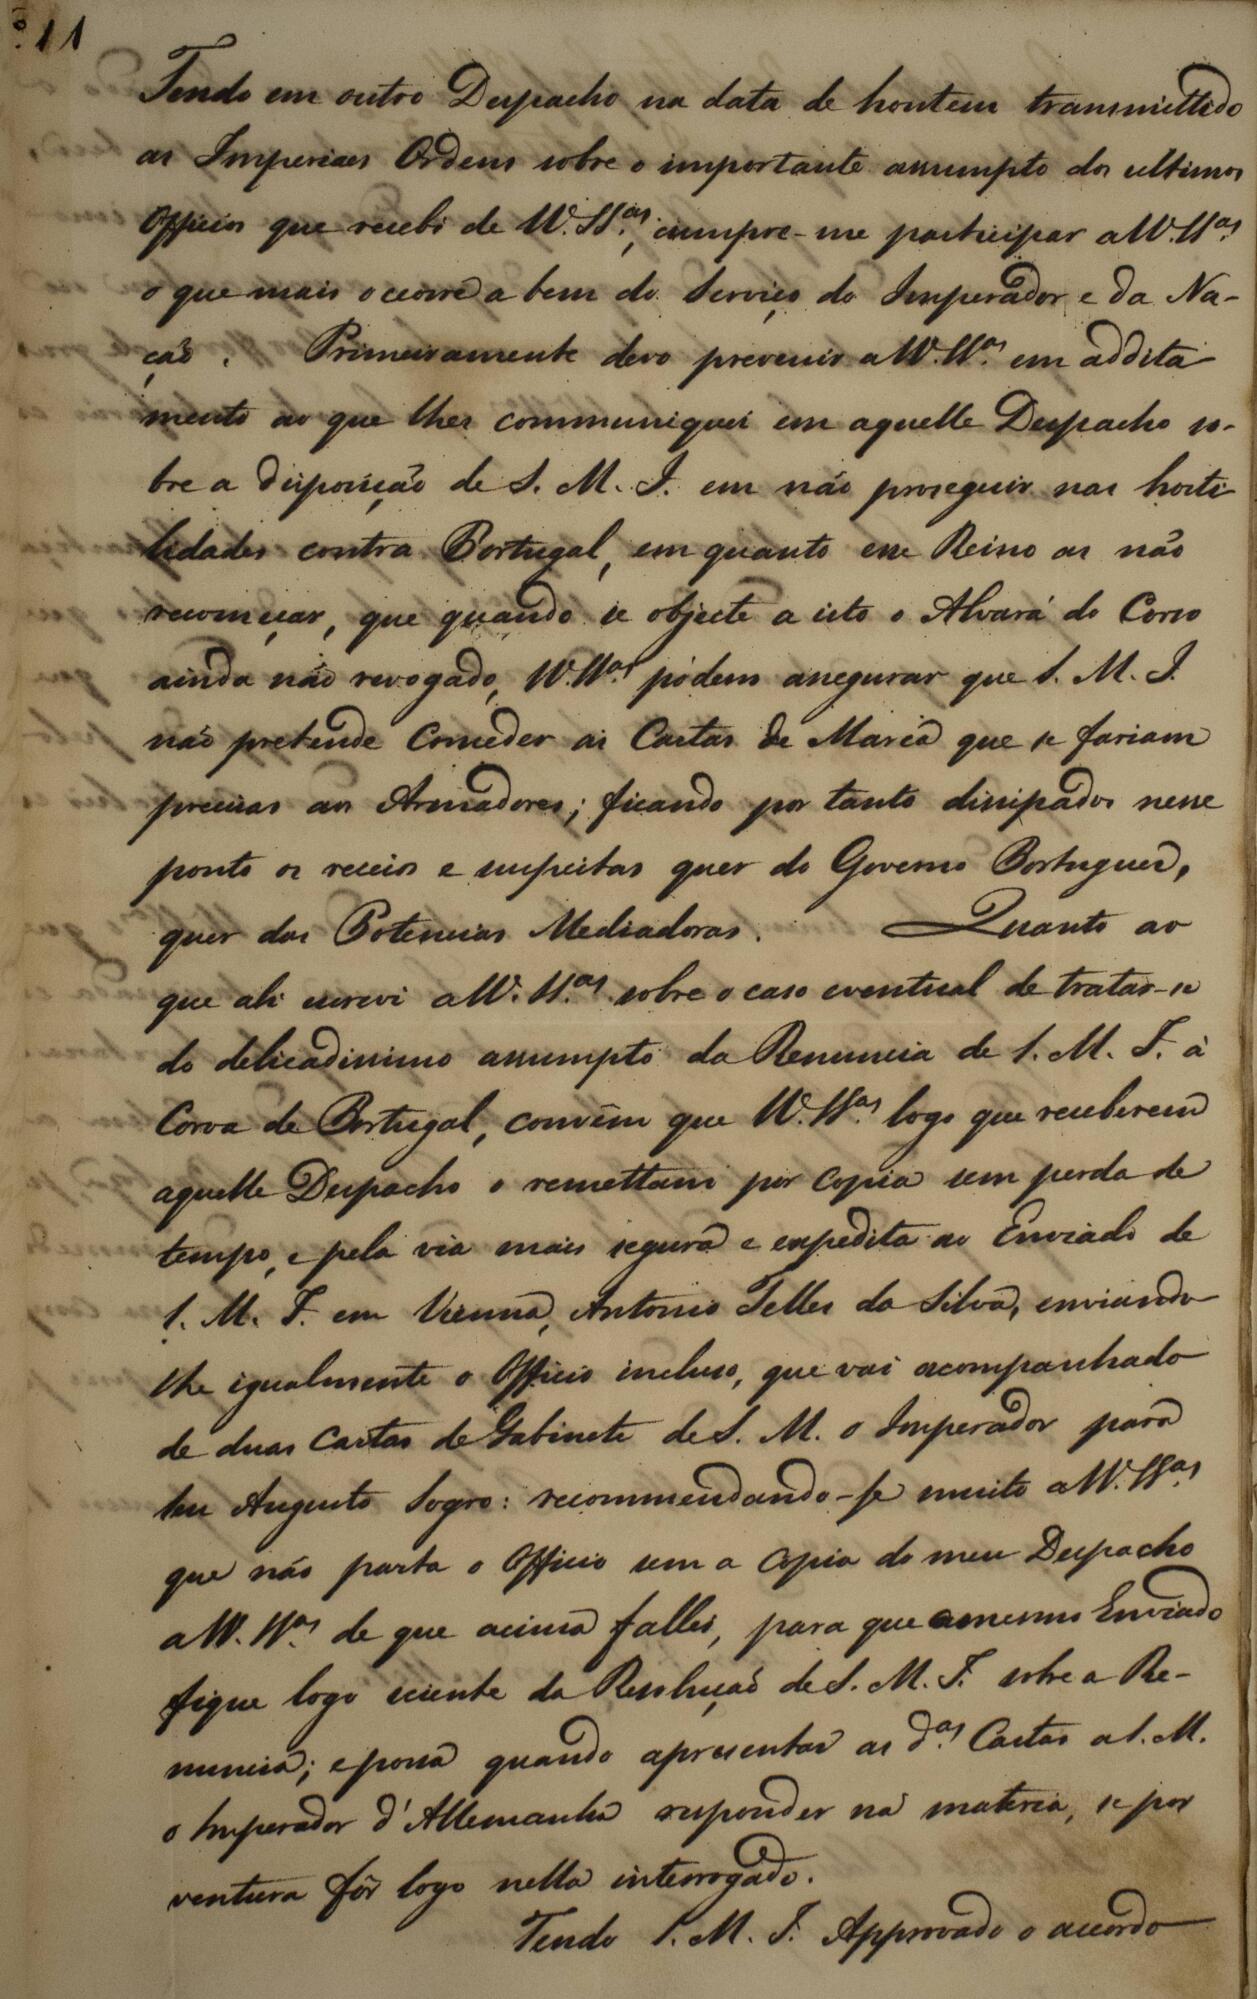 N.º 11
Tendo em outro Despacho na data de hontem transmittido
as Imperiaes Ordens sobre o importante assumpto dos ultimos
Officios que recebi de W. Sas., cumpre-me participar a W. Sas.
o que mais occorre a bem do Serviço do Imperador e da Na-
ção. Primeiramente devo prevenir a W. Sas. em addita
mento ao que lhes communiquei em aquelle Despacho so-
bre a disposição de S. M. I. em não proseguir nas hosti
lidades contra Portugal, em quanto esse Reino as não
recomeçar, que quando se objecte a isto o Alvará do Corso
ainda não revogado, W. Sas. pódem assegurar que S. M. I.
não pretende Conceder as Cartas de Marca que se fariam
precisas aos Armadores; ficando por tanto dissipados nesse
ponto os receios e suspeitas quer do Governo Portuguez,
quer das Potencias Mediadoras. Quanto ao
que ali escrevi a W. Sas. sobre o caso eventual de tratar-se
do delicadissimo assumpto da Renuncia de S. M. I. á
Coroa de Portugal, convêm que W. Sas. logo que receberem
aquelle Despacho o remettam por copia sem perda de
tempo, e pela via mais segura e expedita ao Enviado de
S. M. I. em Vienna, Antonio Telles da Silva, enviando
lhe igualmente o Officio incluso, que vai acompanhado
de duas Cartas de Gabinete de S. M. o Imperador para
seu Augusto Sogro: recommendando-se muito a W. Sas.
que não parta o Officio sem a copia do meu Despacho
a W. Sas. de que acima fallei, para que o mesmo Enviado
fique logo sciente da Resolução de S. M. I. sobre a Re-
nuncia; e possa quando apresentar as das. Cartas a S. M.
o Imperador d'Allemanha responder na materia, se por
ventura fôr logo nella interrogado.
Tendo S. M. I. Approvado o accordo